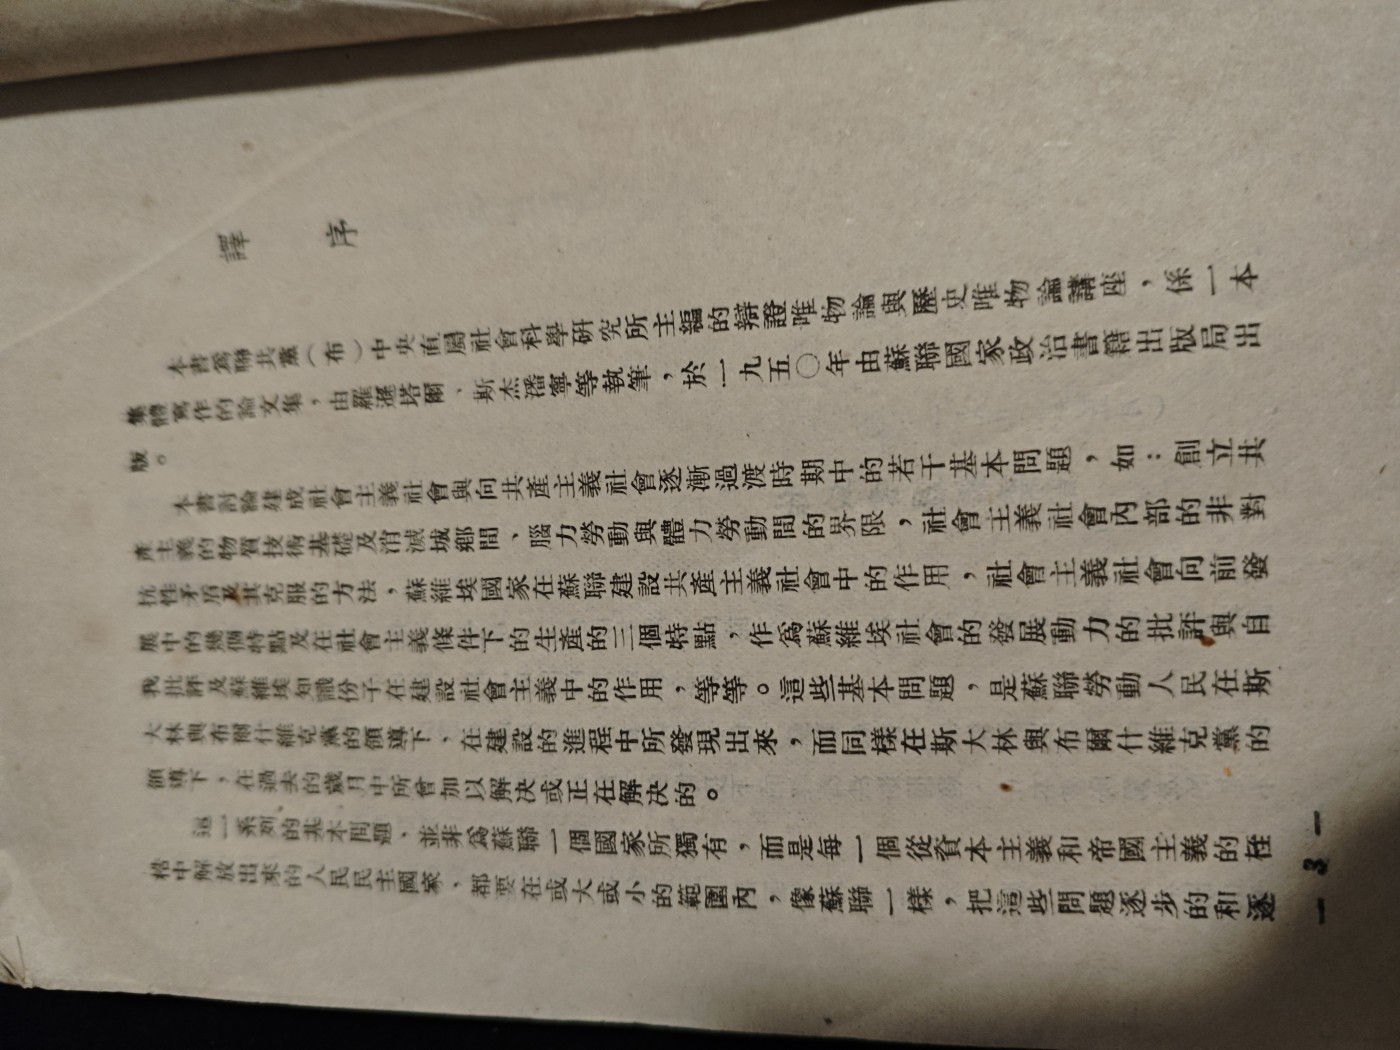 譯序
本書爲聯共黨（布）中央直屬社會科學研究所主編的辯證唯物論與歷史唯物論講座，係一本
集體寫作的論文集，由羅遜塔爾、斯杰潘寧等執筆，於一九五〇年由蘇聯國家政治書籍出版局出
版。
本書討論建成社會主義社會與向共產主義社會逐漸過渡時期中的若干基本問題，如：創立共
產主義的物質技術基礎及消滅城鄉間、腦力勞動與體力勞動間的界限，社會主義社會內部的非對
抗性矛盾及其克服的方法，蘇維埃國家在蘇聯建設共產主義社會中的作用，社會主義社會向前發
展中的幾個特點及在社會主義條件下的生產的三個特點，作爲蘇維埃社會的發展動力的批評與自
我批評及蘇維埃知識份子在建設社會主義中的作用，等等。這些基本問題，是蘇聯勞動人民在斯
大林與布爾什維克黨的領導下，在建設的進程中所發現出來，而同樣在斯大林與布爾什維克黨的
領導下，在過去的歲月中所曾加以解決或正在解決的。
這一系列的基本問題，並非爲蘇聯一個國家所獨有，而是每一個從資本主義和帝國主義的桎
梏中解放出來的人民民主國家，都要在或大或小的範圍內，像蘇聯一樣，把這些問題逐步的和逐
— 3 —